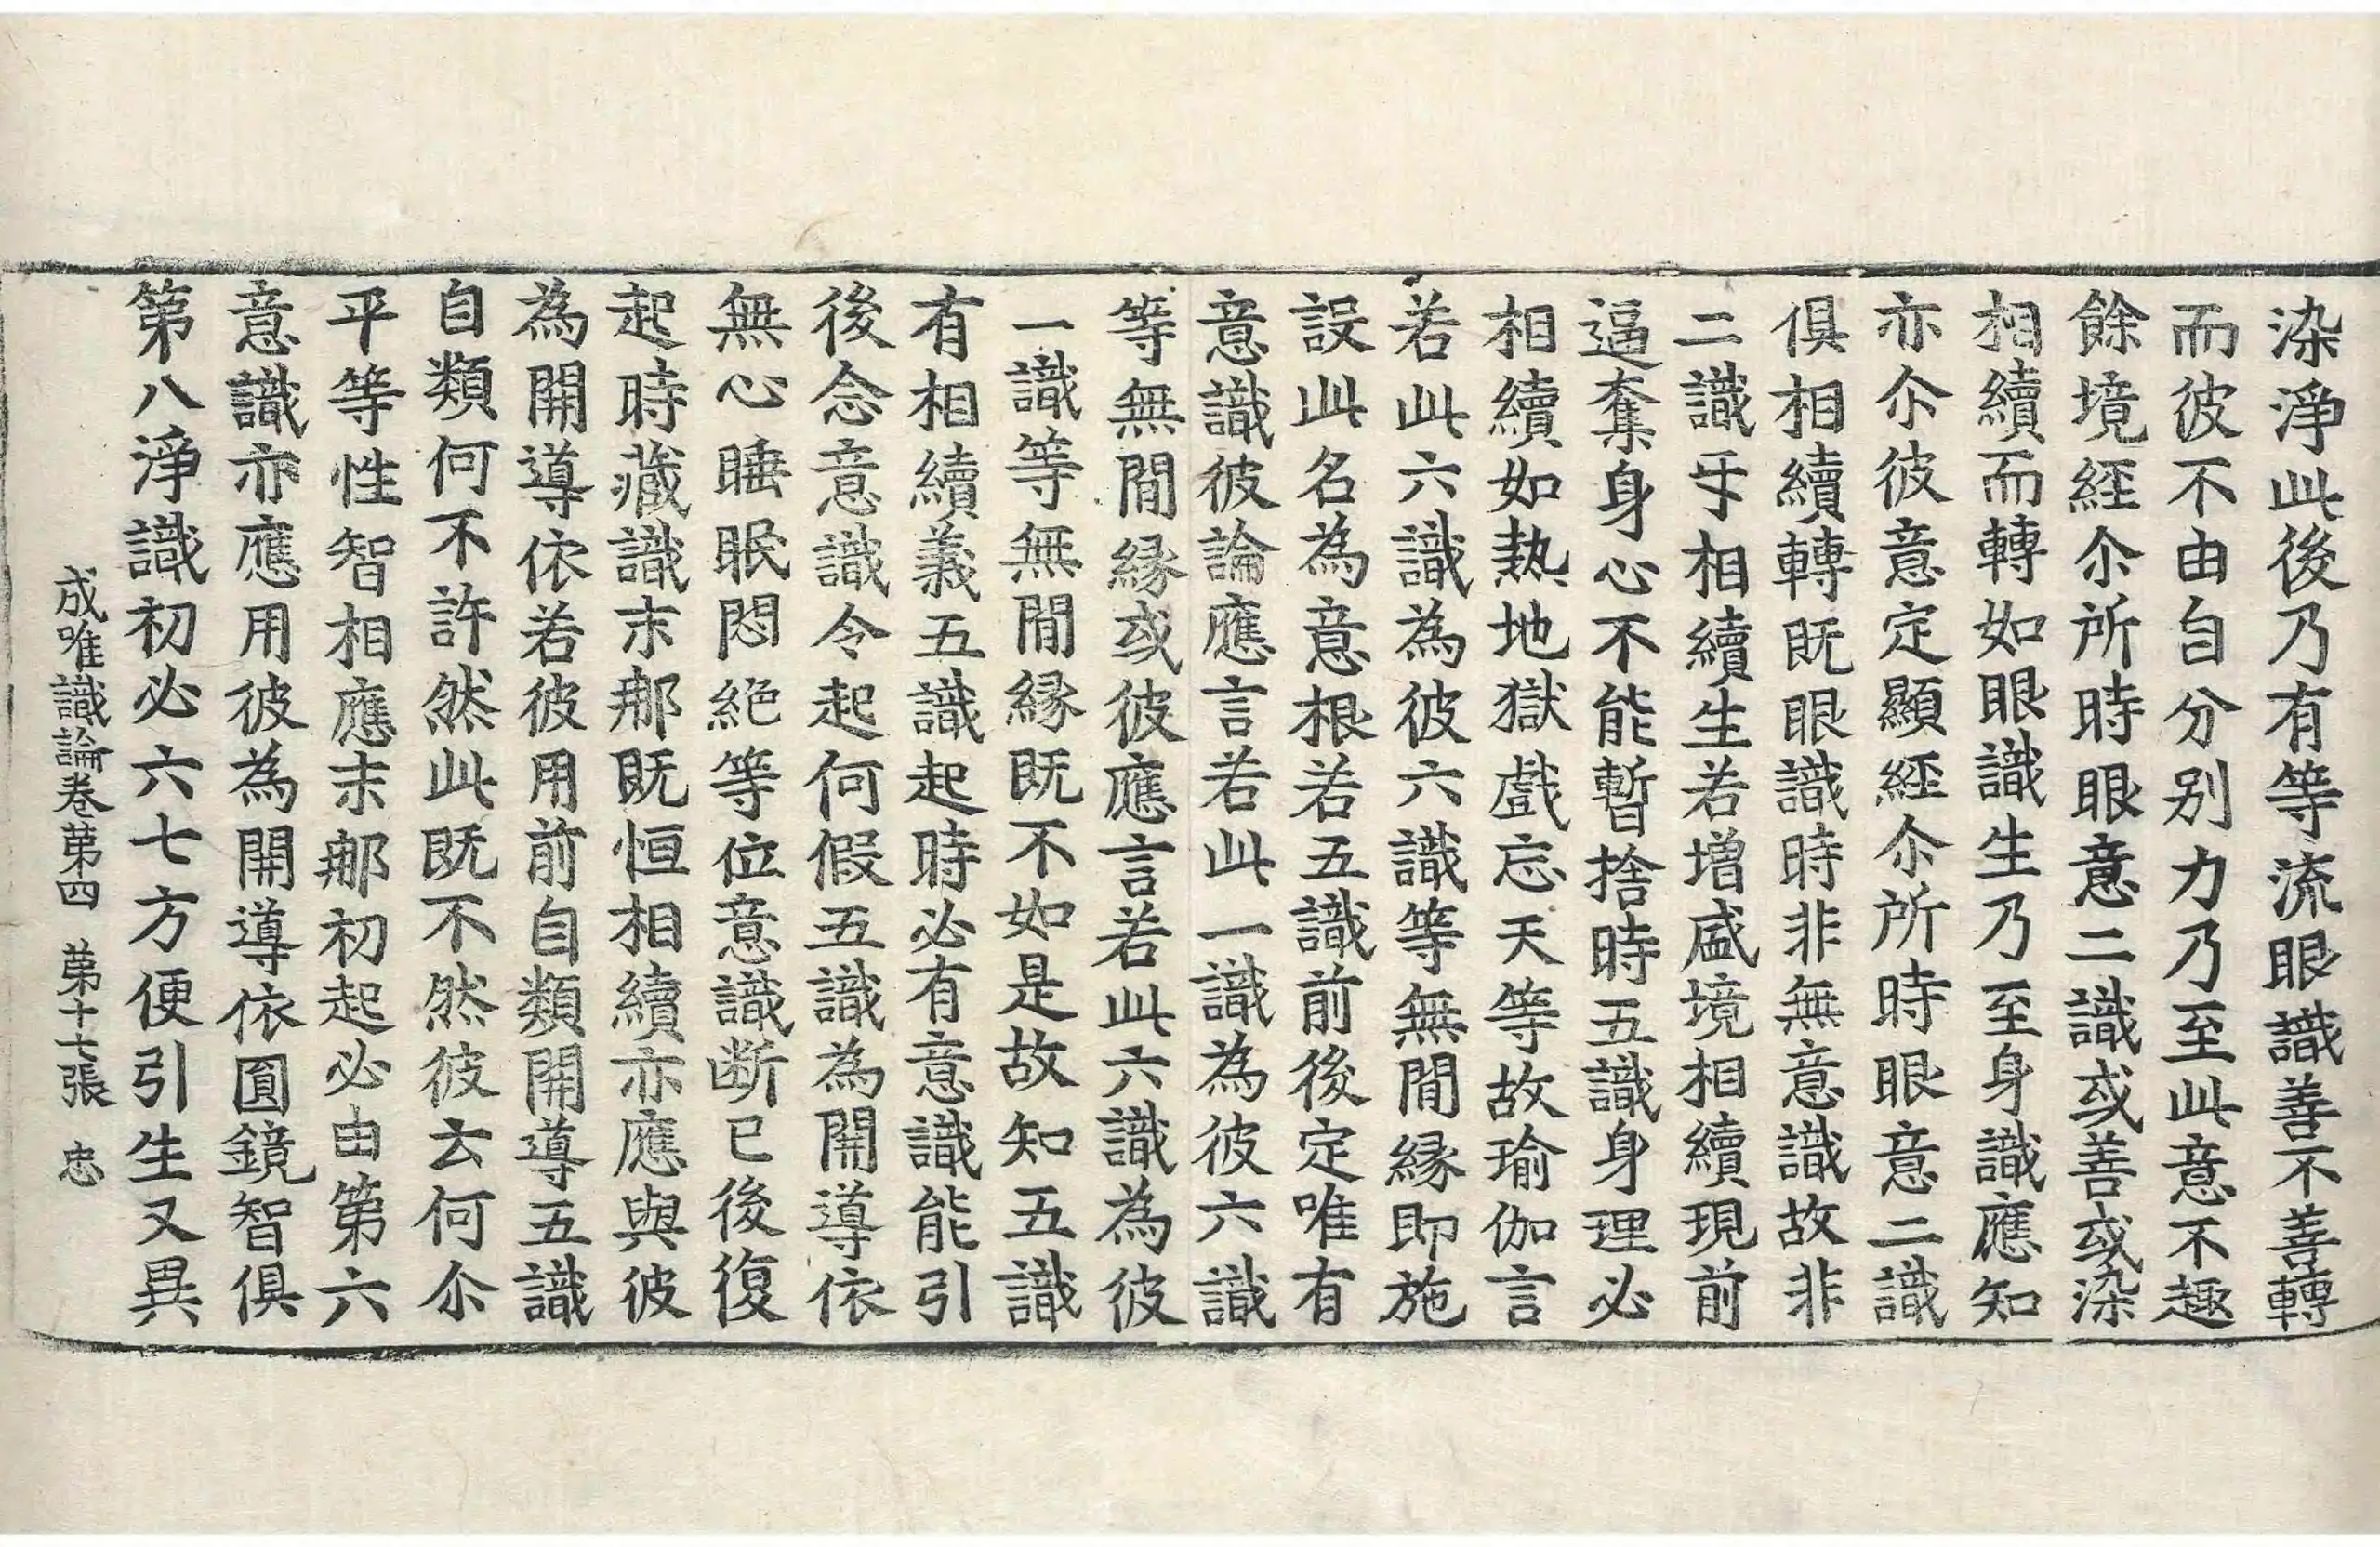 染淨此後乃有等流眼識善不善轉
而彼不由自分别力乃至此意不趣
餘境經尒所時眼意二識或善或染
相續而轉如眼識生乃至身識應知
亦尒彼意定顯經尒所時眼意二識
俱相續轉既眼識時非無意識故非
二識㸦相續生若增盛境相續現前
逼奪身心不能暫捨時五識身理必
相續如熱地獄戲忘天等故瑜伽言
若此六識為彼六識等無間縁即施
設此名為意根若五識前後定唯有
意識彼論應言若此一識為彼六識
等無間縁或彼應言若此六識為彼
一識等無間縁既不如是故知五識
有相續義五識起時必有意識能引
後念意識令起何假五識為開導依
無心睡眠悶絶等位意識断已後復
起時藏識末那既恒相續亦應與彼
為開導依若彼用前自類開導五識
自類何不許然此既不然彼云何尒
平等性智相應末那初起必由第六
意識亦應用彼為開導依圓鏡智俱
第八淨識初必六七方便引生又異
成唯識論卷第四 第十七張 忠